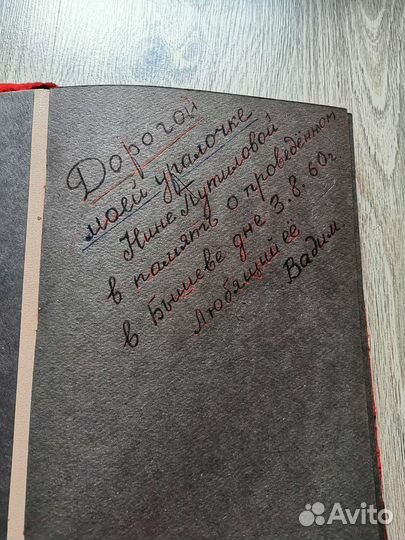 Дорогой
моей уралочке
Нине Путиловой
в память о проведённом
в Бышеве дне 3.8.60г.
Любящий её
Вадим.
Avito